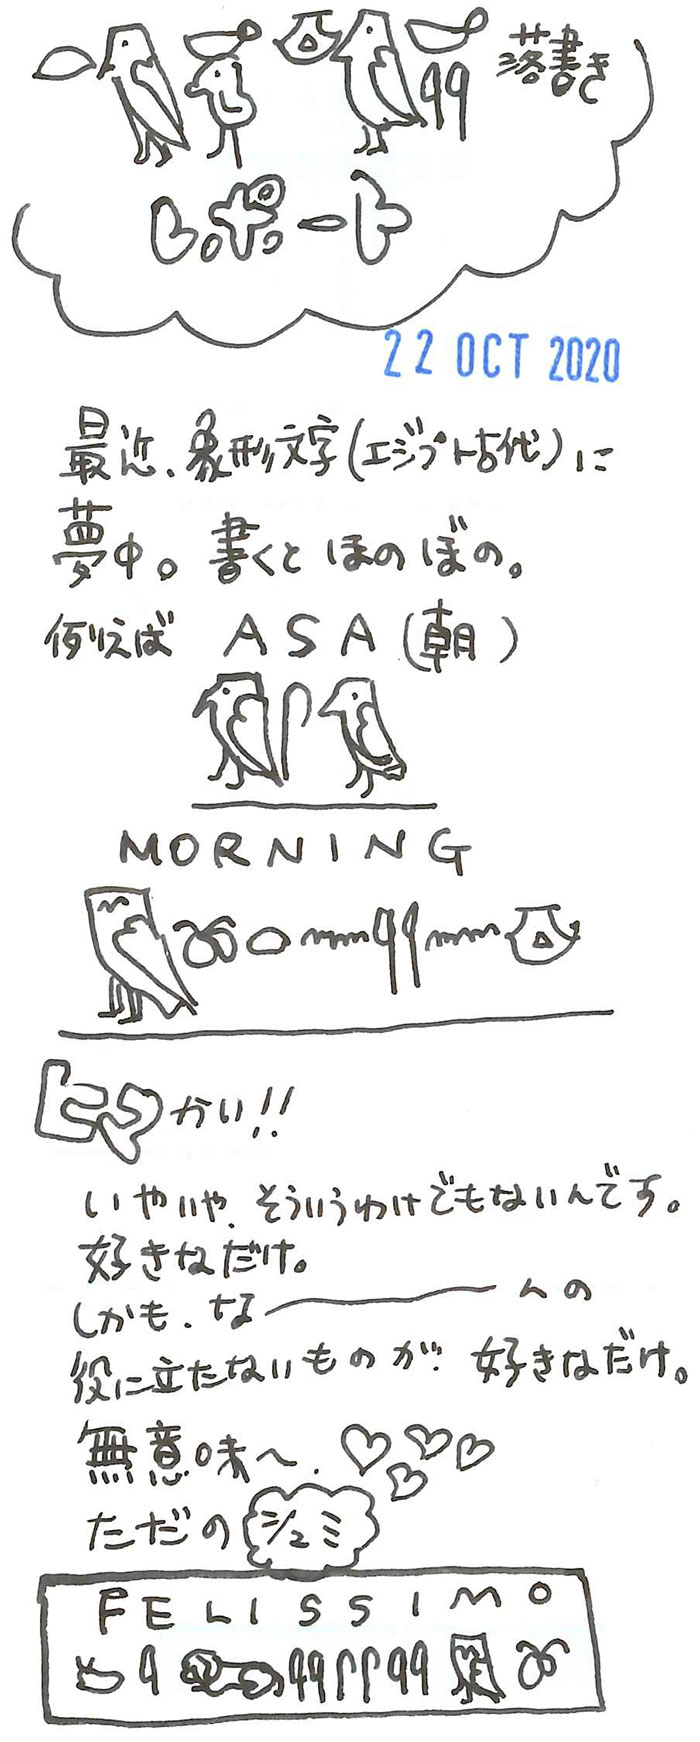 落書き
レポート
22 OCT 2020
最近、象形文字(エジプト古代)に
夢中。書くとほのぼの。
例えば ASA(朝)
MORNING
ヒマかい!!
いやいや、そういうわけでもないんです。
好きなだけ。
しかも、な――んの
役に立たないものが、好きなだけ。
無意味〜、♡♡♡♡
ただの シュミ
FELISSIMO